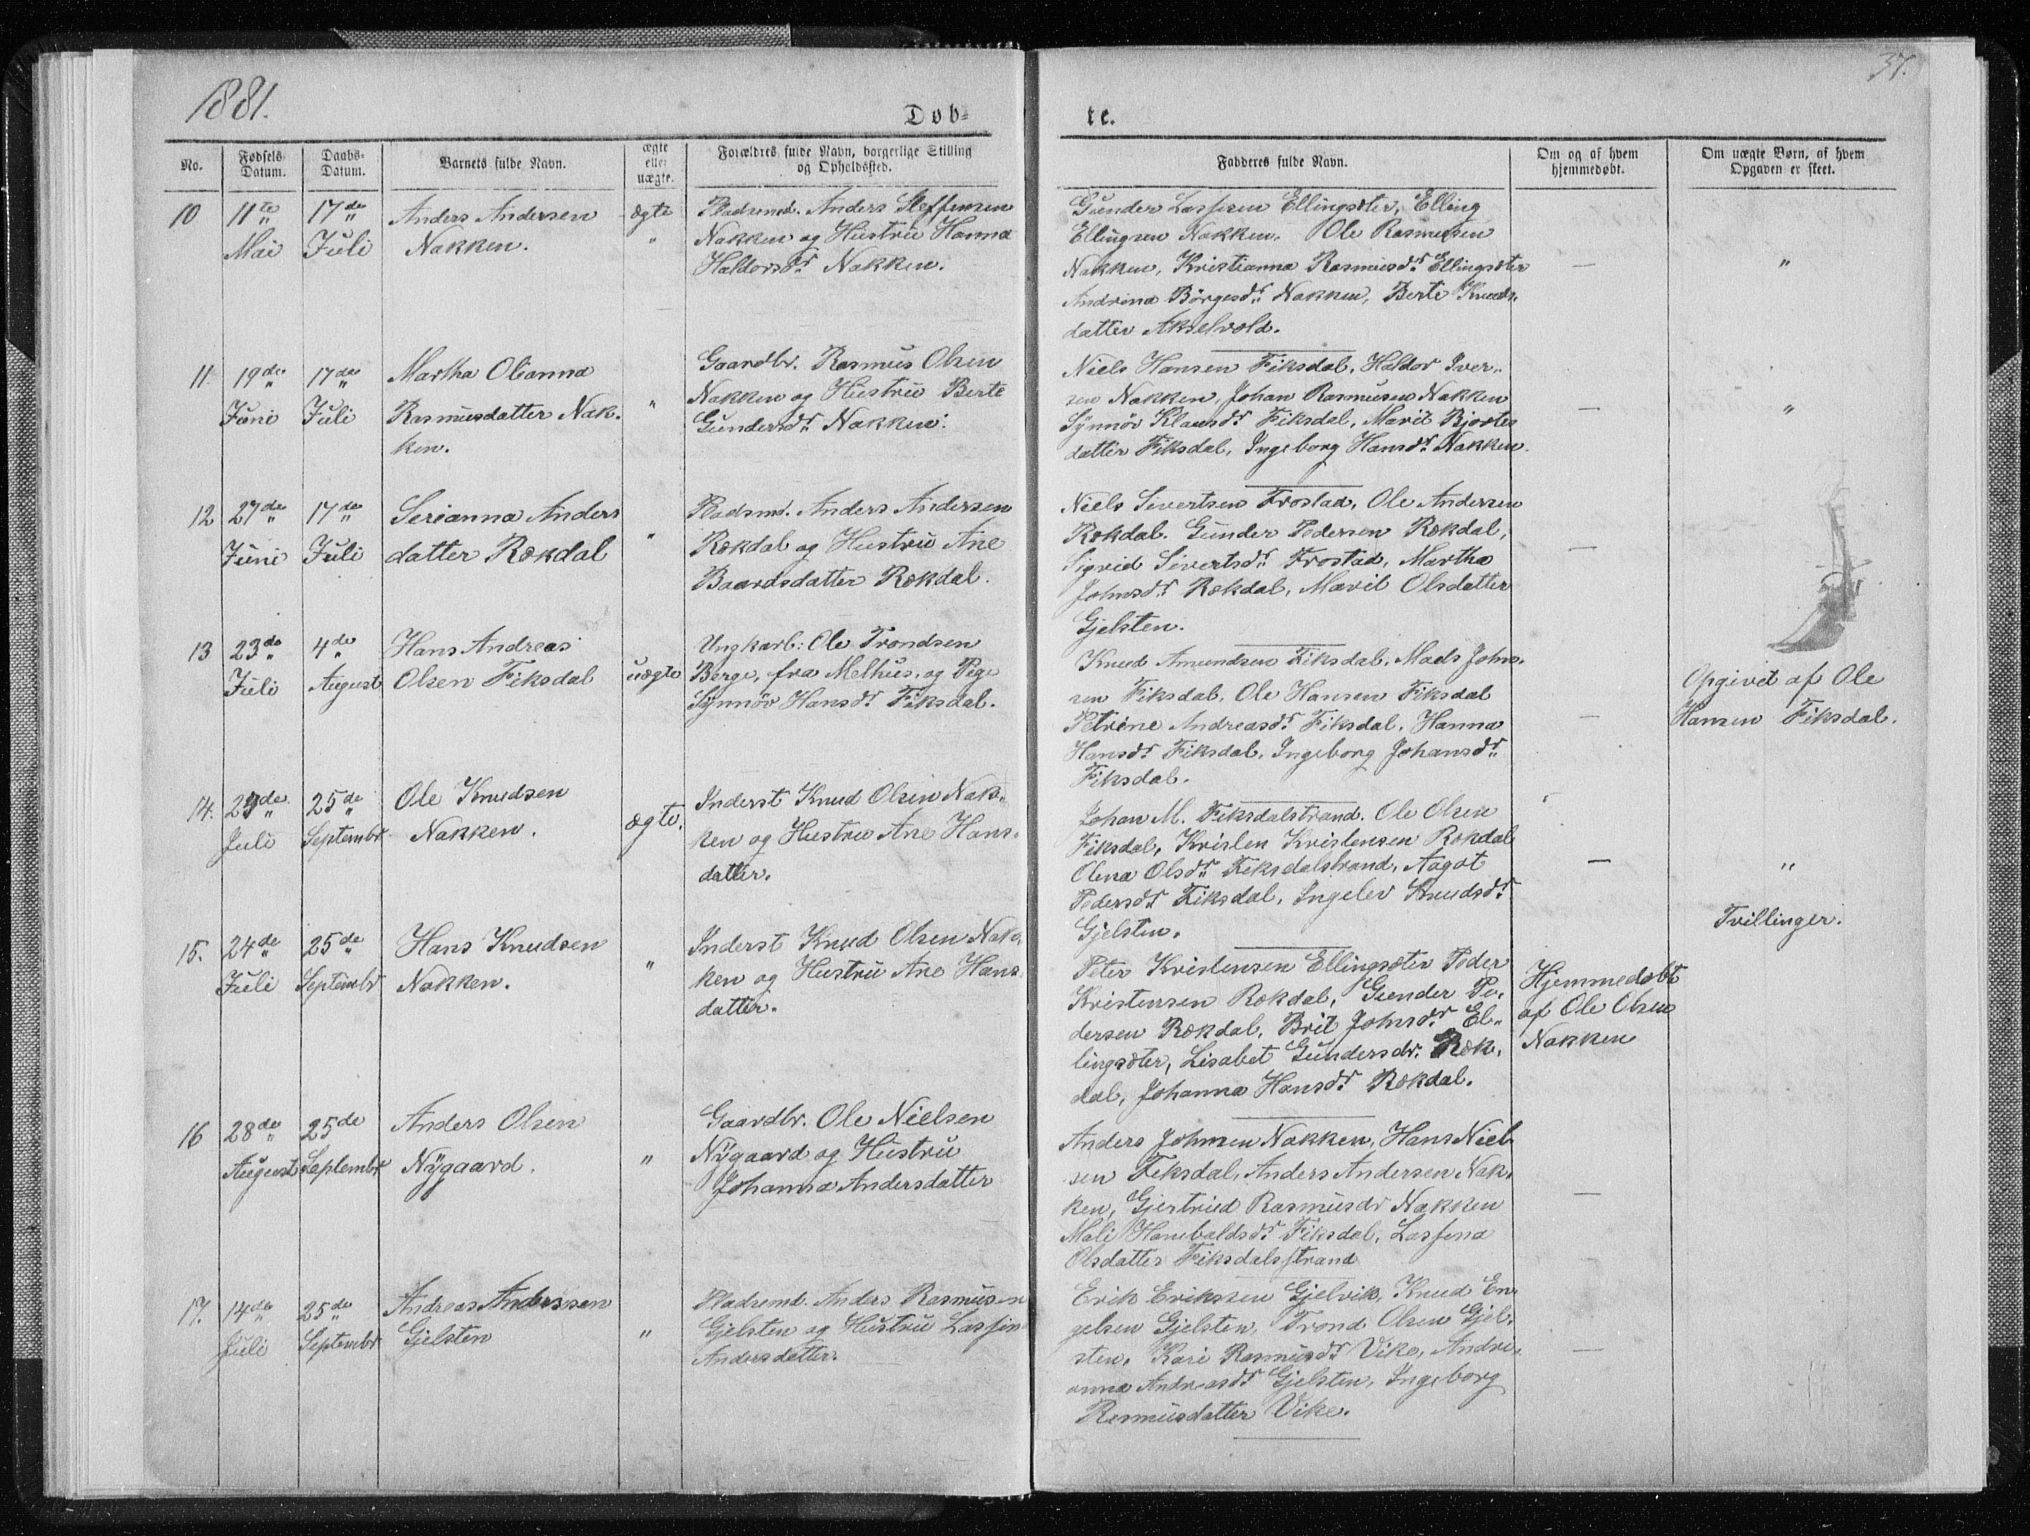 1881.
37.
Døb-
te.
No.
Fødsels-Datum.
Daabs-Datum.
Barnets fulde Navn.
ægte eller uægte.
Forældres fulde Navn, borgerlige Stilling og Opholdssted.
Fadderes fulde Navn.
Om og af hvem hjemmedøbt.
Om uægte Børn, af hvem Opgaven er skeet.
10 11te Mai 17de Juli
Anders Andersen
Nakken.
ægte
Pladsmd. Anders Steffensen
Nakken og Hustru Hanna
Haldorsdr Nakken.
Gunder Lassesen Ellingsæter, Elling
Ellingsen Nakken. Ole Rasmussen
Nakken, Kristianna Rasmusdr Ellingsæter
Andrina Börgesdr Nakken, Berte Knuds-
datter Akselvold.
—
"
11. 19de Juni 17de Juli
Martha Olianna
Rasmusdatter Nak-
ken.
"
Gaardbr. Rasmus Olsen
Nakken og Hustru Berte
Gundersdr Nakken.
Niels Hansen Fiksdal, Haldor Iver-
sen Nakken, Johan Rasmusen Nakken
Synnöv Klausdr Fiksdal, Marit Bjortes
datter Fiksdal, Ingeborg Hansdr Nakken.
—
"
12 27de Juni 17de Juli
Serianna Anders
datter Rækdal
"
Pladsmd. Anders Andersen
Rækdal og Hustru Ane
Baardsdatter Rækdal.
Niels Sivertsen Frostad, Ole Andersen
Rækdal. Gunder Pedersen Rækdal,
Sigrid Sivertsdr Frostad, Martha
Johnsdr Rækdal, Marit Olsdatter
Gjelsten.
—
13 23de Juli 4de August
Hans Andreas
Olsen Fiksdal
uægte
Ungkarl: Ole Trondsen
Berge, fra Melhus, og Pige
Synnöv Hansdr Fiksdal.
Knud Amundsen Fiksdal, Mads John-
sen Fiksdal, Ole Hansen Fiksdal
Petrine Andreasdr Fiksdal, Hanna
Hansdr Fiksdal, Ingeborg Johansdr
Fiksdal.
—
Opgivet af Ole
Hansen Fiksdal.
14. 23de Juli 25de Septembr
Ole Knudsen
Nakken.
ægte.
Inderst Knud Olsen Nak-
ken og Hustru Ane Hans-
datter.
Johan M. Fiksdalstrand. Ole Olsen
Fiksdal, Kristen Kristensen Rækdal
Olena Olsdr Fiksdalstrand, Aagot
Pedersdr Fiksdal, Ingelev Knudsdr
Gjelsten.
—
"
Tvillinger.
15. 24de Juli 25de Septembr
Hans Knudsen
Nakken.
"
Inderst Knud Olsen Nak-
ken og Hustru Ane Hans
datter.
Peter Kristensen Ellingsæter Peder
Kristensen Rækdal, Gunder Pe-
dersen Rækdal, Brit Johnsdr El-
lingsæter, Lisabet Gundersdr. Ræk-
dal, Johanna Hansdr Rækdal.
Hjemmedöbt
af Ole Olsen
Nakken
16 28de August 25de Septembr
Anders Olsen
Nygaard.
"
Gaardbr. Ole Nielsen
Nygaard og Hustru
Johanna Andersdatter
Anders Johnsen Nakken, Hans Niel-
sen Fiksdal, Anders Andersen Nak-
ken, Gjertrud Rasmusdr Nakken
Mali Hanebaldsdr Fiksdal, Lassena
Olsdatter Fiksdalsstrand
—
17. 14de Juli 25de Septembr
Andreas Anderssen
Gjelsten
"
Pladsemd. Anders Rasmusen
Gjelsten og Hustru Lassin
Andersdatter.
Erik Eriksen Gjelvik, Knud En-
gelsen Gjelsten, Trond Olsen Gjel-
sten. Kari Rasmusdr Vike, Andri-
anna Andreasdr Gjelsten, Ingeborg
Rasmusdatter Vike.
—